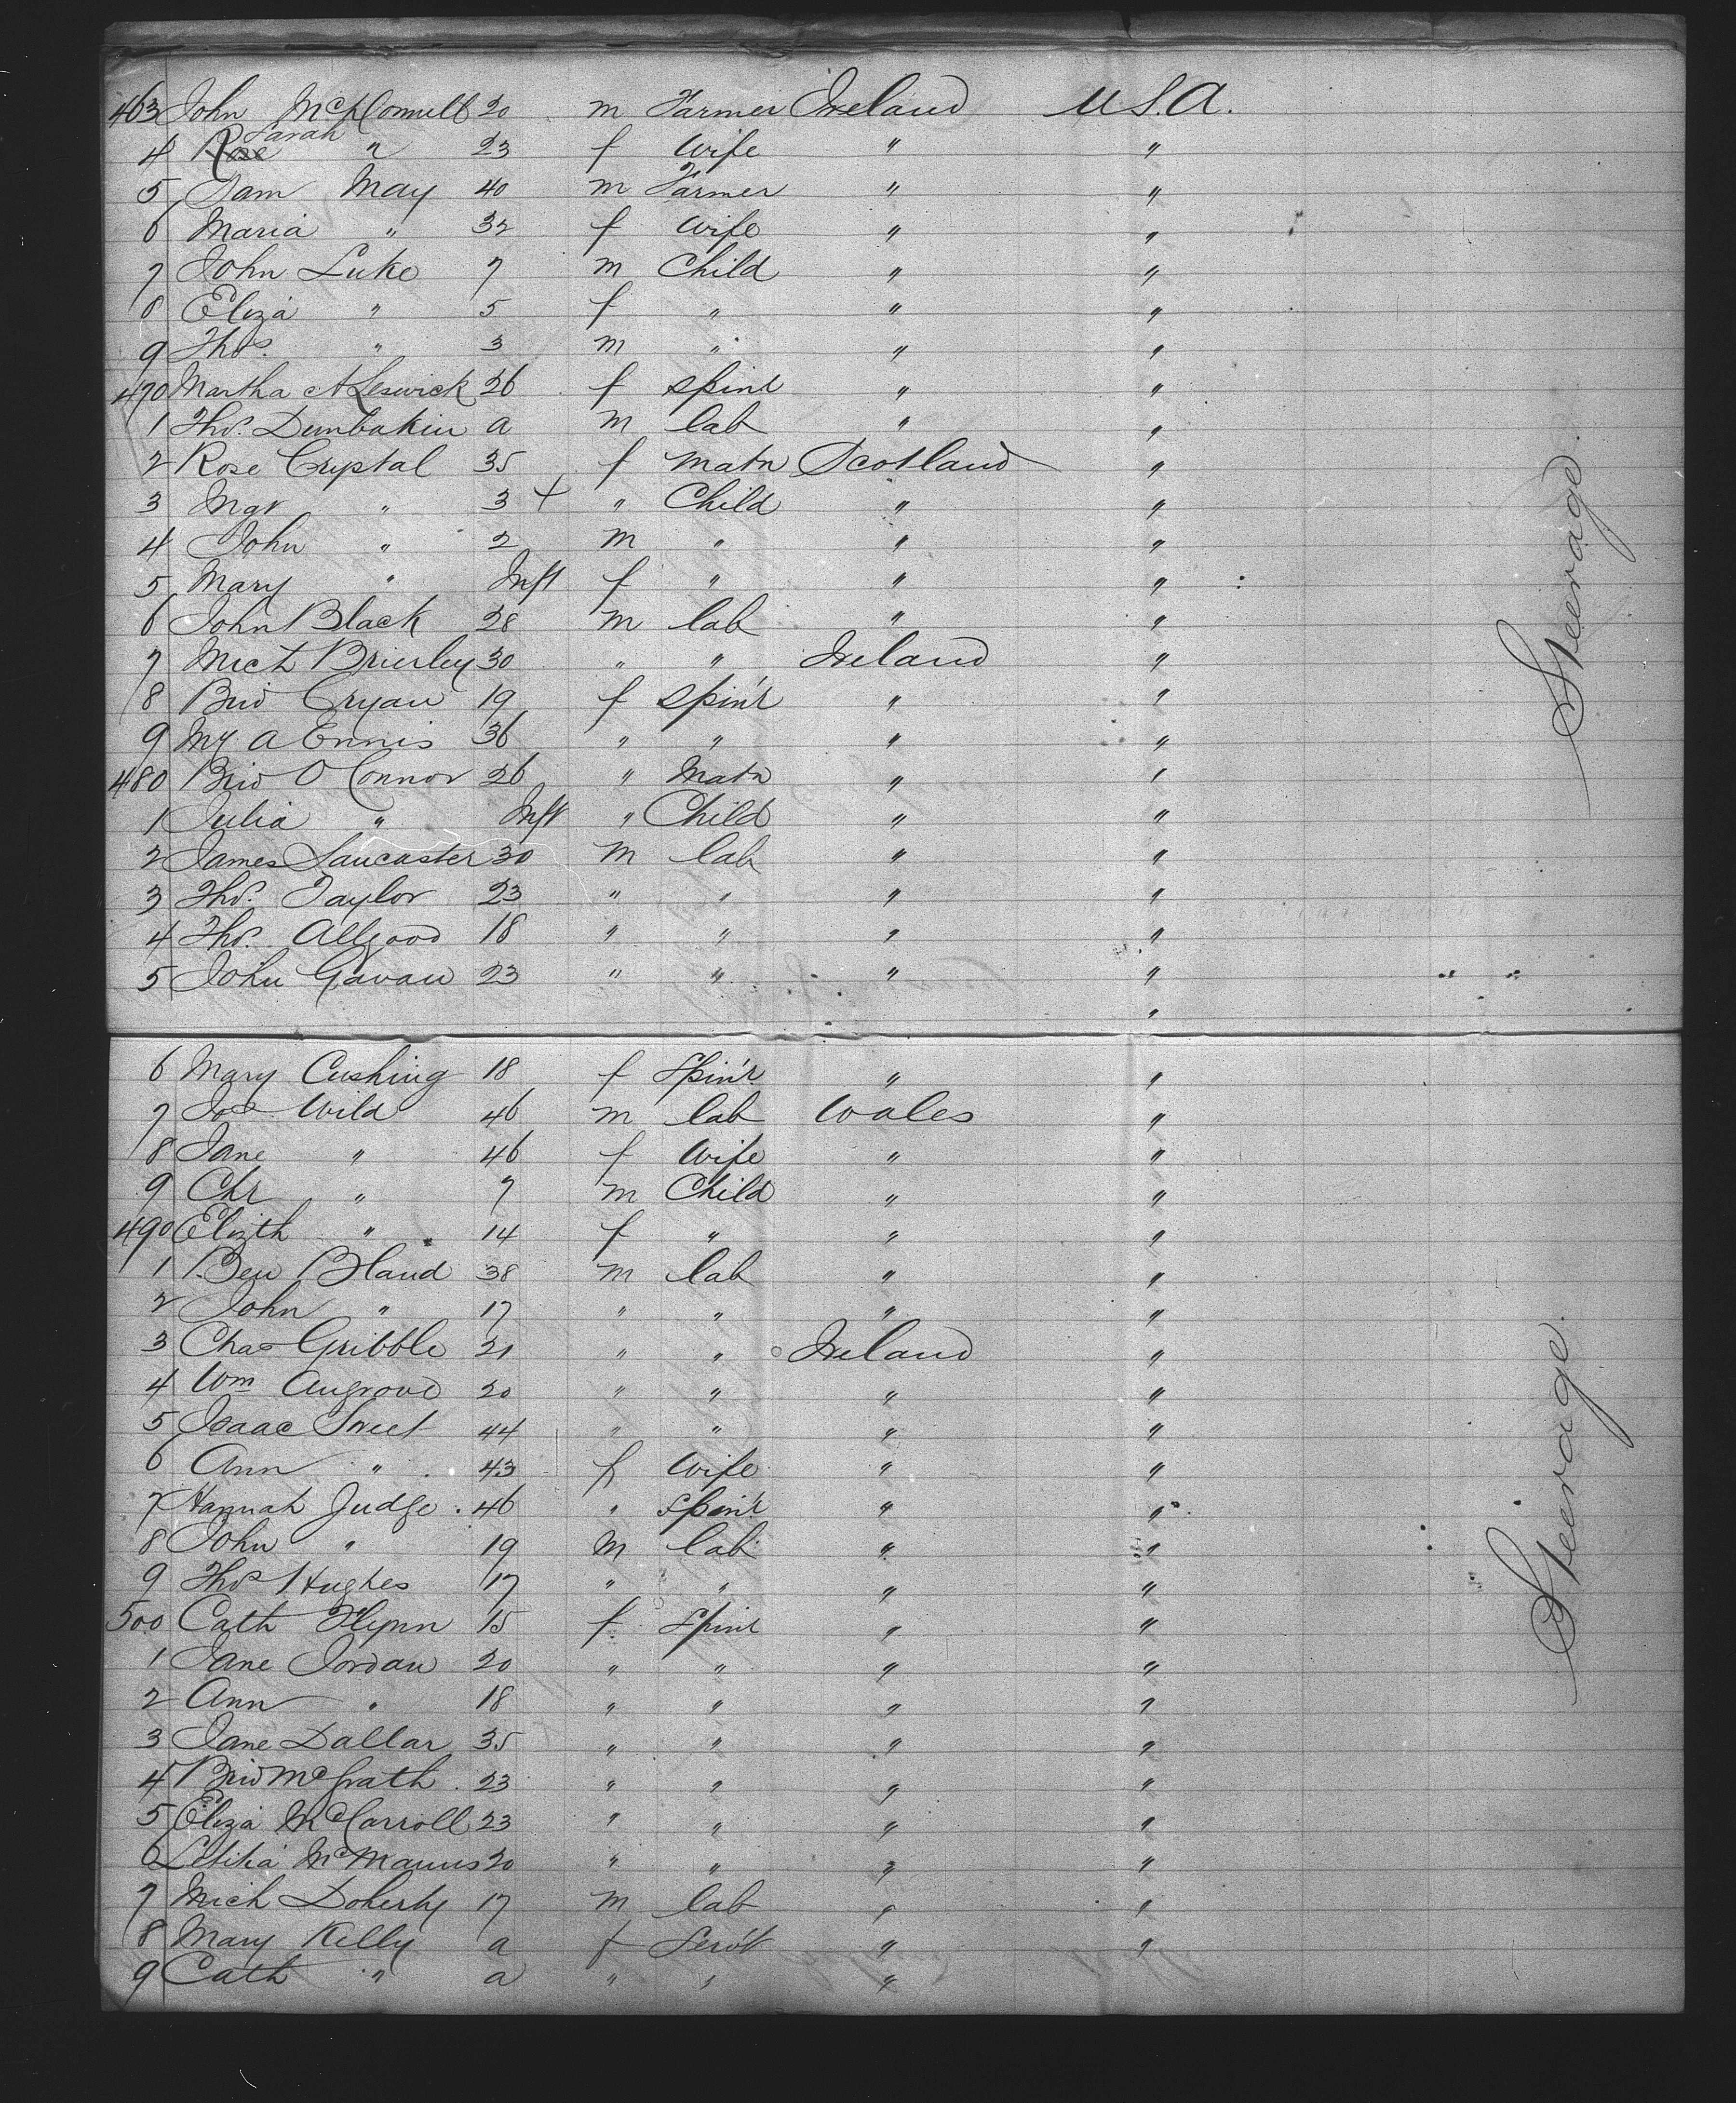 463 John McConnell 20 m Farmer Ireland U.S.A.
4 Rose Sarah " 23 f Wife " "
5 Sam May 40 m Farmer " "
6 Maria " 32 f Wife " "
7 John Luke 7 m Child " "
8 Eliza " 5 f " " "
9 Thos. " 3 m " " "
470 Martha A Leswick 26 f spinr " "
1 Thos. Dunbakin a m lab " "
2 Rose Crystal 35 f Matn Scotland "
3 Mgt " 3 + " Child " "
4 John " 2 m " " "
5 Mary " Inft f " " "
6 John Black 28 m lab " "
7 Mich Brierley 30 " " Ireland "
8 Brid Cryan 19 f spin'r " "
9 My A Ennis 36 " " " "
480 Brid O'Connor 26 " Matn " "
1 Julia " Inft " Child " "
2 James Lancaster 30 m lab " "
3 Thos. Taylor 23 " " " "
4 Thos. Allgood 18 " " " "
5 John Gavan 23 " " " "
"
Steerage
6 Mary Cushing 18 f Spin'r " "
7 Jos Wild 46 m lab Wales "
8 Jane " 46 f Wife " "
9 Chr " 7 m Child " "
490 Elizth " 14 f " " "
1 Ben Bland 38 m lab " "
2 John " 17 " " " "
3 Chas Gribble 21 " " Ireland "
4 Wm Angrove 20 " " " "
5 Isaac Sweet 44 " " " "
6 Ann " 43 f Wife " "
7 Hannah Judge 46 " Spin'r " "
8 John " 19 m lab " "
9 Thos Hughes 17 " " " "
500 Cath Flynn 15 f Spinr " "
1 Jane Jordan 20 " " " "
2 Ann " 18 " " " "
3 Jane Dallar 35 " " " "
4 Brid McGrath 23 " " " "
5 Eliza McCarroll 23 " " " "
6 Letitia McManus 20 " " " "
7 Mich Doherty 17 m lab " "
8 Mary Kelly a f Serv't " "
9 Cath " a " " "
Steerage.